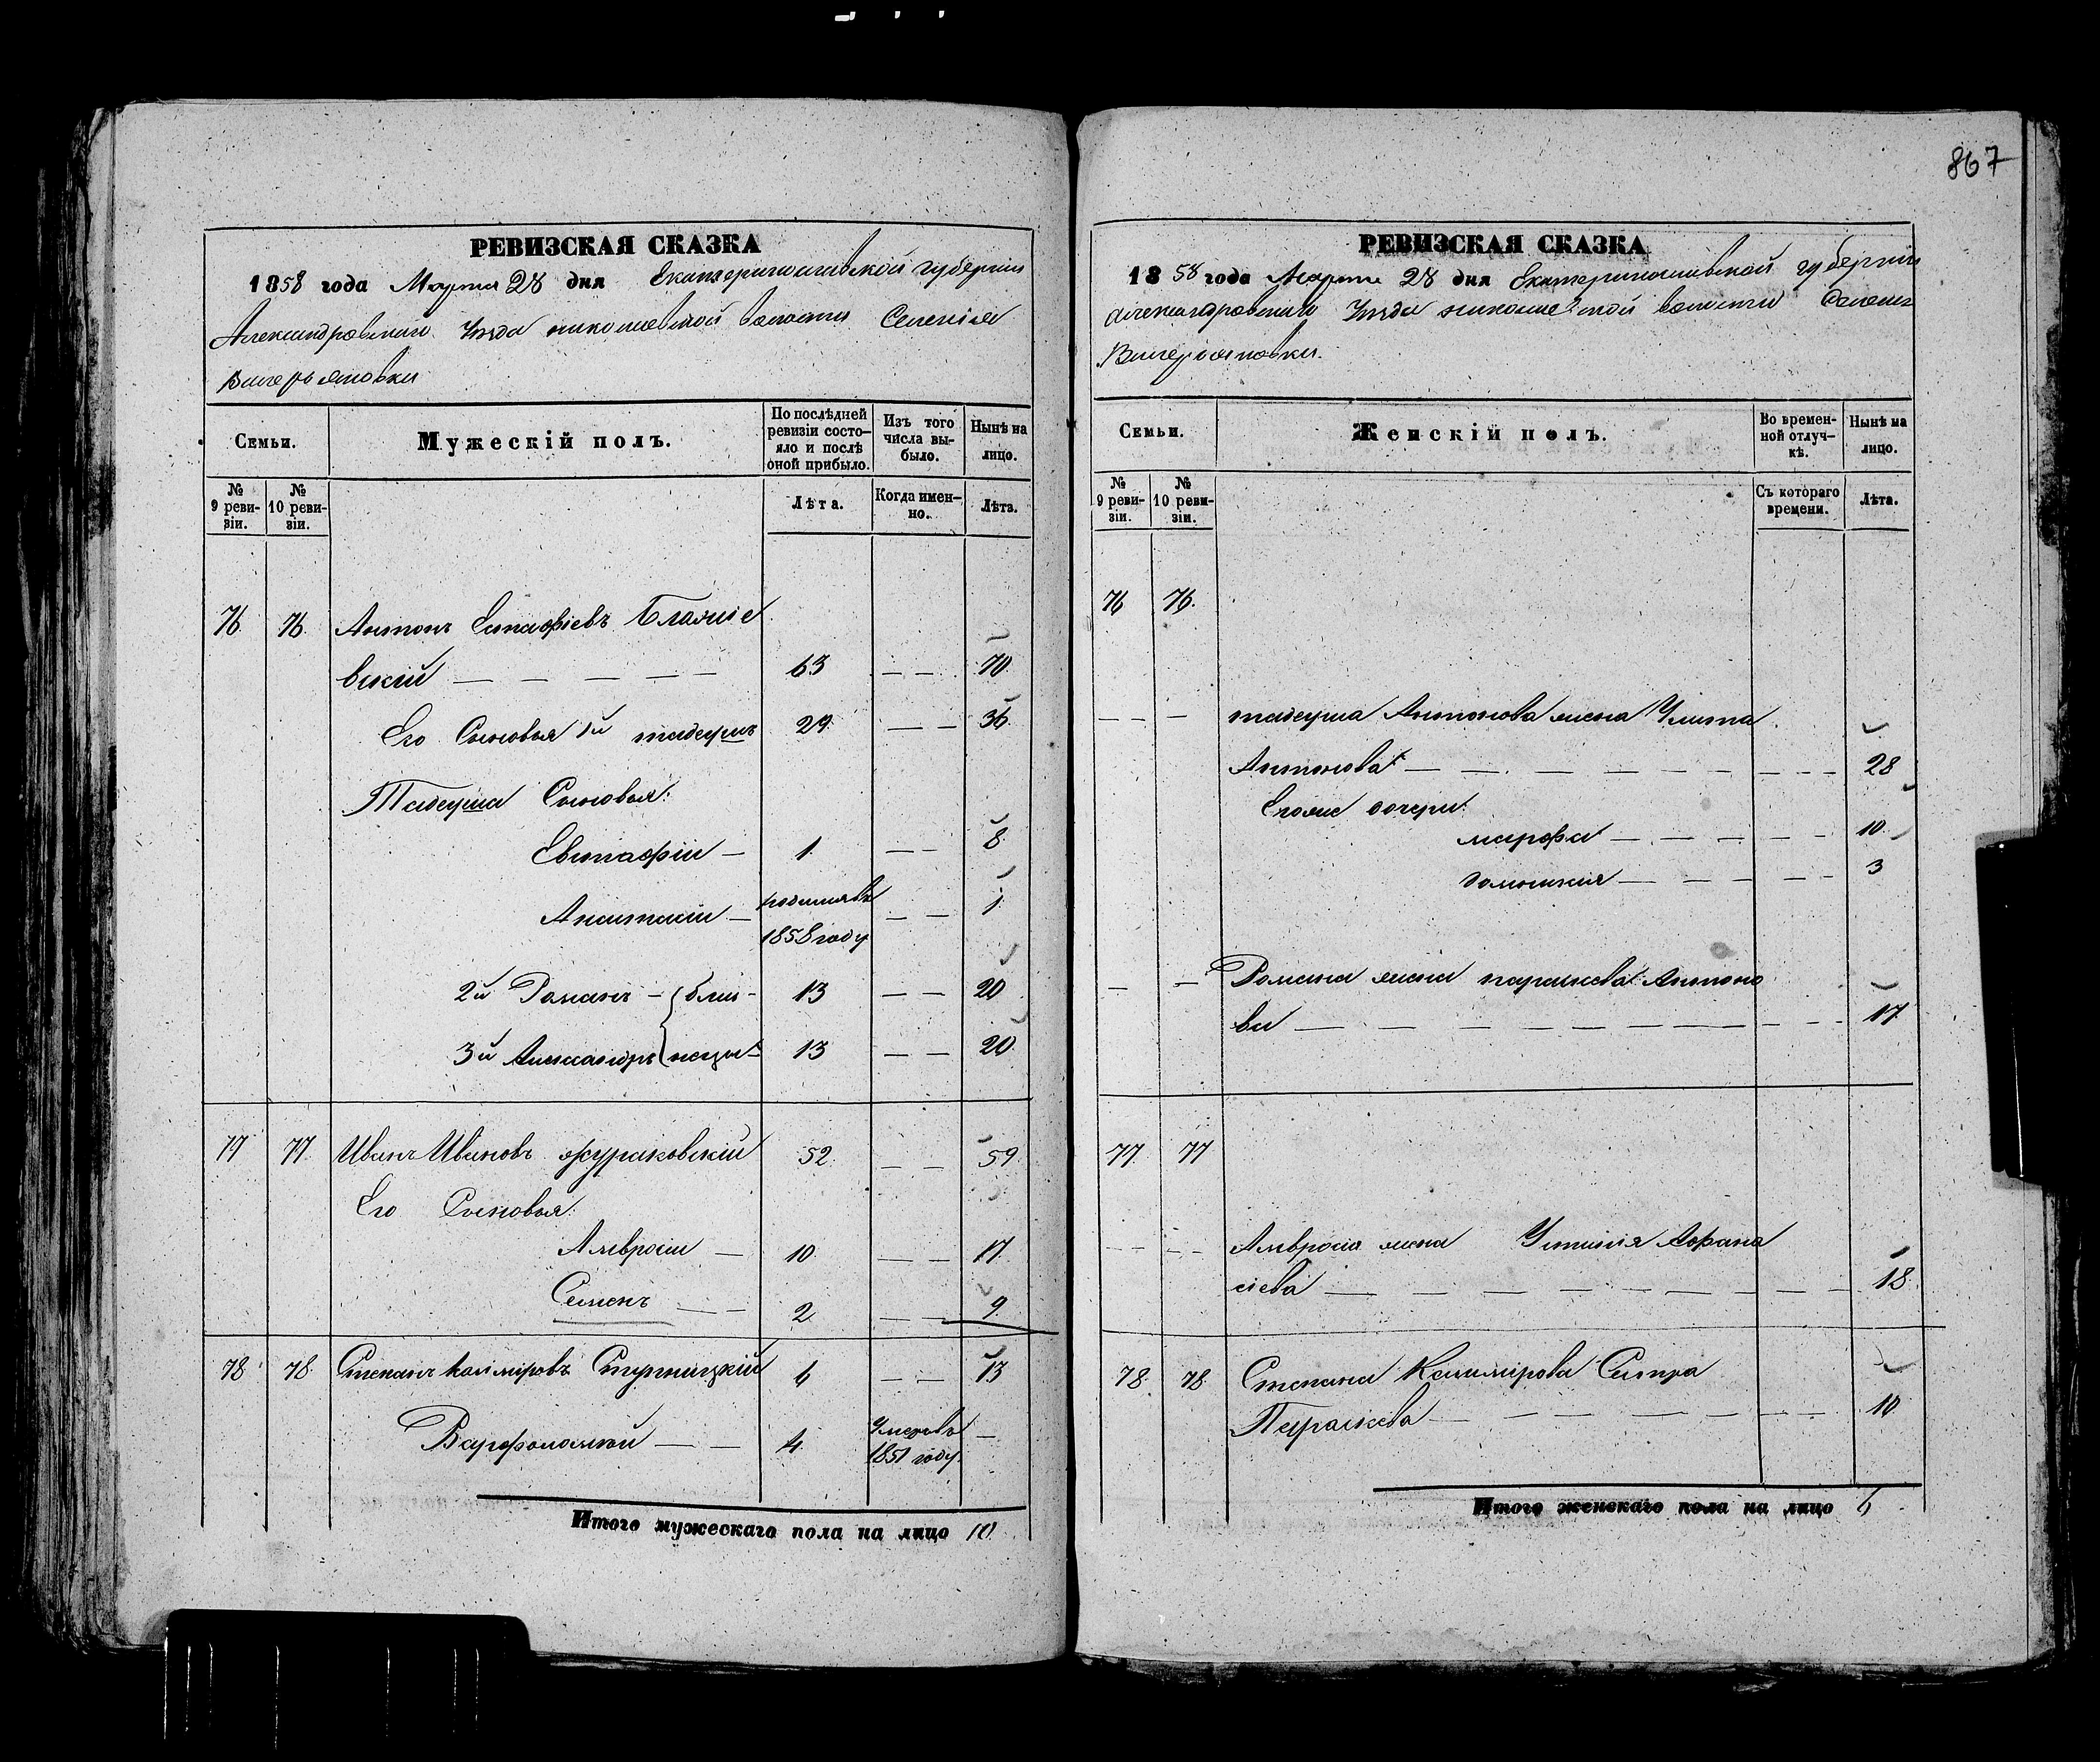 867
РЕВИЗСКАЯ СКАЗКА
1858 года Марта 28 дня Екатеринославской губерніи
Александровскаго Уезда николаевской волости Селенія
Валерьяновки
Семьи.
Мужескій полъ.
По послѣдней ревизіи состо-
яло и послѣ оной прибыло.
Изъ того числа вы-
было.
Нынѣ на лицо.
№ 9 реви-
зіи.
№ 10 реви-
зіи.
Лѣта.
Когда имен-
но.
Лѣта.
76 76 Антонъ Евстафіевъ
вский — 63 — — 70
Его Сыновья 1й тадеушъ 29 — — 36
Тадеуша Сыновья:
Евстафій — 1 — — 8
Анастасій — родился въ 1858 году — — 1
2й Романъ — близ- 13 — — 20
3й Александръ нецы 13 — — 20
77 77 Иванъ Ивановъ журиковскій 52 — — 59
Его Сыновья:
Амвросій — 10 — — 17
Семенъ — — 2 — — 9
78 78 Степанъ Казиміровъ Струтицкій 6 — — 13
Варфоломей — — 4 Умеръ въ 1851 году —
Итого мужескаго пола на лицо 10
РЕВИЗСКАЯ СКАЗКА
1858 года Марта 28 дня Екатеринославской губерніи
Александровскаго Уезда николаевской волости Селенія
Валерьяновки.
Семьи.
Женскій полъ.
Во времен-
ной отлуч-
кѣ.
Нынѣ на лицо.
№ 9 реви-
зіи.
№ 10 реви-
зіи.
Съ котораго времени.
Лѣта.
76 76.
— — — тадеуша Антонова жена Улита
Антонова — — — 28
Егоже дочери:
марфа — — — 10
домникія — — — 3
— — Романа жена параскева Антоно
ва — — — 17
77 77
— — — Амвросія жена Устинія Афана
сіева — — — 18
78 78 Степана Казимірова Сестра
Параскева — — — 10
Итого женскаго пола на лицо 6